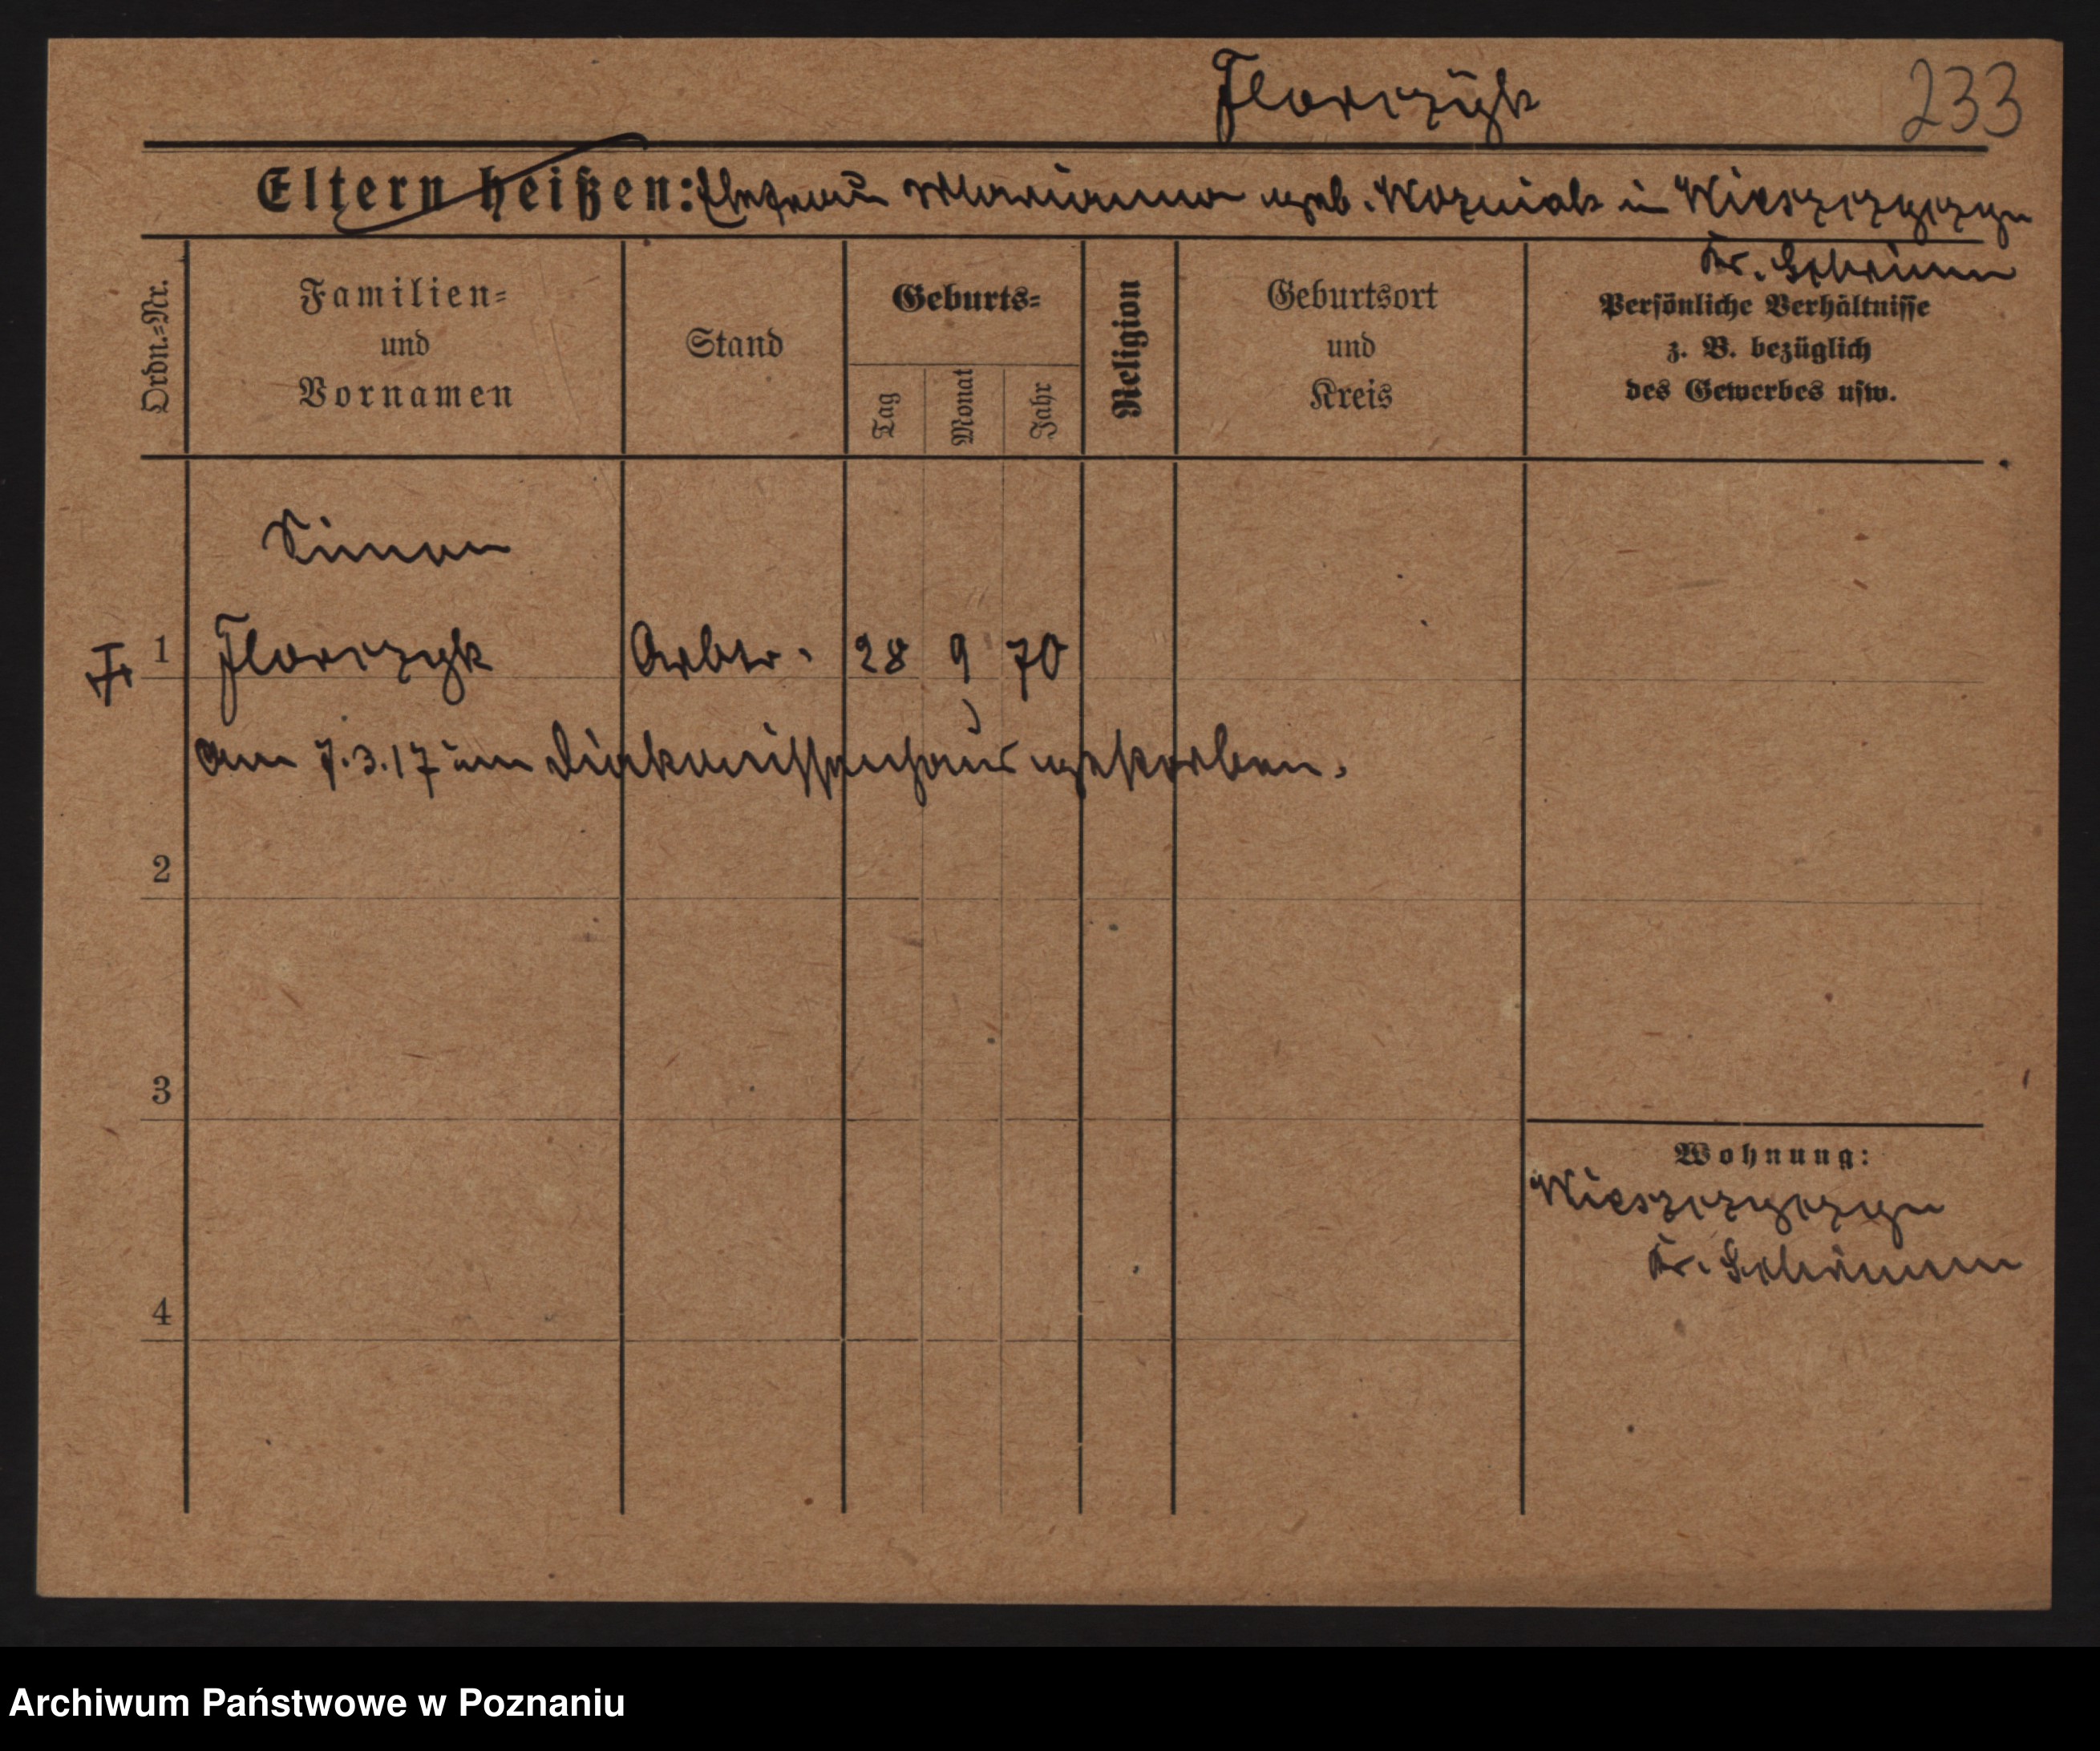 Florczÿk
233
Eltern heißen: Ehefrau Marianna geb. Wozniak in Wieszczyczyn
Kr. Schrimm
Ordn.=Nr.
Familien=
und
Vornamen
Stand
Geburts=
Tag
Monat
Jahr
Religion
Geburtsort
und
Kreis
Persönliche Verhältnisse
z. B. bezüglich
des Gewerbes usw.
Simon
1 Florczyk Arbtr. 28 9 70
am 7.3.17 im Diakonissenhaus gestorben.
2
3
Wohnung:
Wieszczyczyn
Kr. Schrimm
4
Archiwum Państwowe w Poznaniu